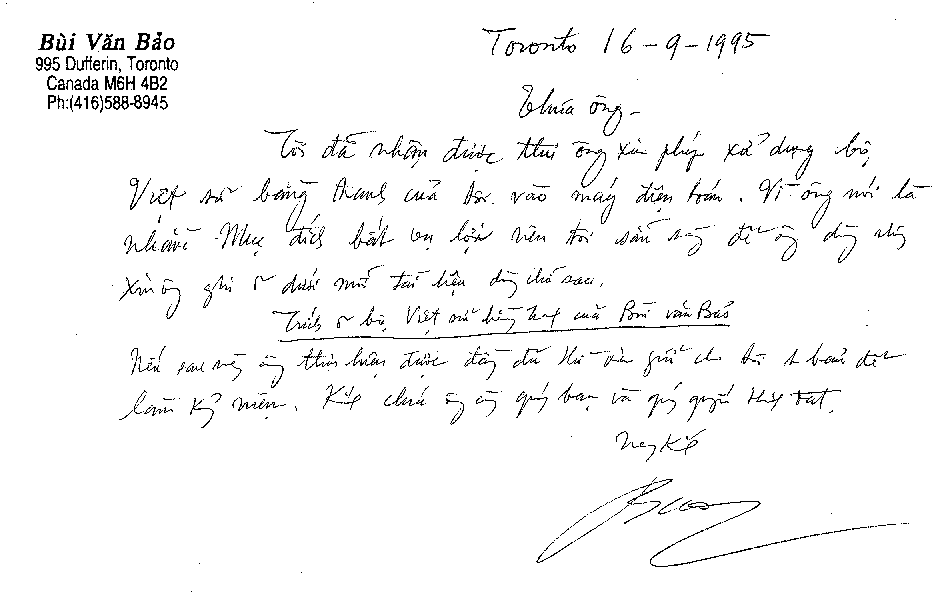 Bùi Văn Bảo
995 Dufferin, Toronto
Canada M6H 4B2
Ph:(416)588-8945
Toronto 16-9-1995
Thưa ông -
Tôi đã nhận được thư ông xin phép xử dụng bộ
Việt sử bằng tranh của tôi vào máy điện toán. Vì ông nói là
Mục đích bất vụ lợi nên tôi sẵn sàng để ông dùng
xin ông ghi ở dưới mỗi tài liệu dòng chữ sau.
Trích ở bộ Việt sử bằng tranh của Bùi văn Bảo
Nếu sau này ông thực hiện được đầy đủ thì xin gửi cho tôi 1 bản để
làm kỷ niệm. Kính chúc ông cùng quý bạn và quý quyến
Nay Kính